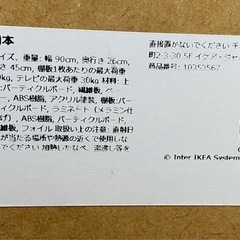 本
イズ、重量: 幅 90cm, 奥行き 26cm,
さ 45cm, 棚板1枚あたりの最大荷重
kg, テレビの最大荷重 30kg 材料: 上
パーティクルボード、繊維板、
ー、ABS樹脂, アクリル塗装, 棚板:
ーティクルボード, ラミネート (メラミン仕
げ), ABS樹脂, 背板: パーティクルボー
繊維板, フォイル 取扱い上の注意: 直射日
が当たる場所や熱源の近くで使用しな
でください 加熱したなべ、湯沸し等を
直接置かないでください
町2-3-30 5F イケア・ジャ
商品番号: 10353567
© Inter IKEA System